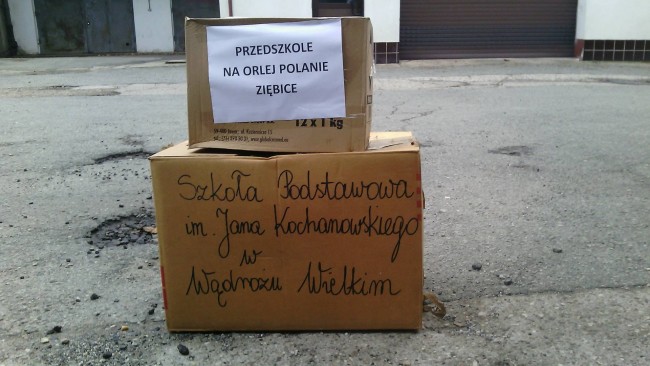 PRZEDSZKOLE
NA ORLEJ POLANIE
ZIĘBICE
12 x 1 kg
Szkoła Podstawowa
im. Jana Kochanowskiego
w
Wądrożu Wielkim